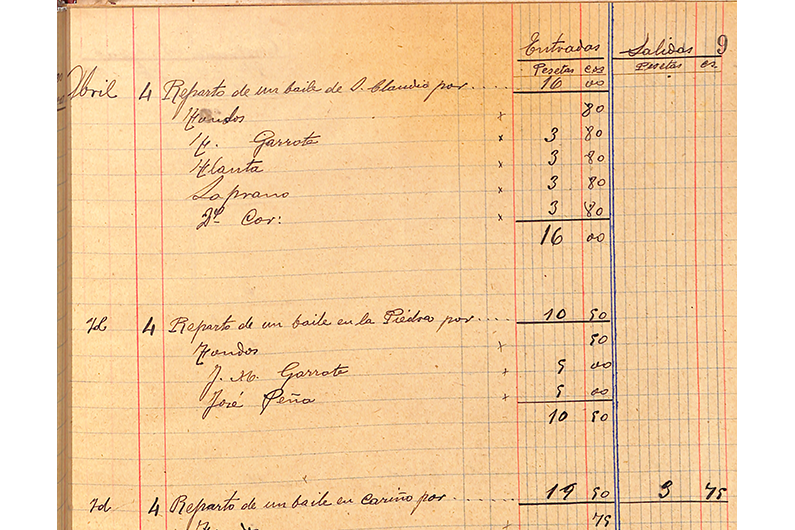 Entradas Salidas 9
Pesetas cts Pesetas cs
Abril 4 Reparto de un baile de S. Claudio por.... 16 00
Fondos x 80
M. Garrote x 3 80
Flauta x 3 80
Soprano x 3 80
2º Cor: x 3 80
16 00
Id 4 Reparto de un baile en la Piedra por.... 10 50
Fondos x 50
J. M. Garrote x 5 00
José Peña x 5 00
10 50
Id 4 Reparto de un baile en Cariño por.... 19 50 3 75
Fondos 75